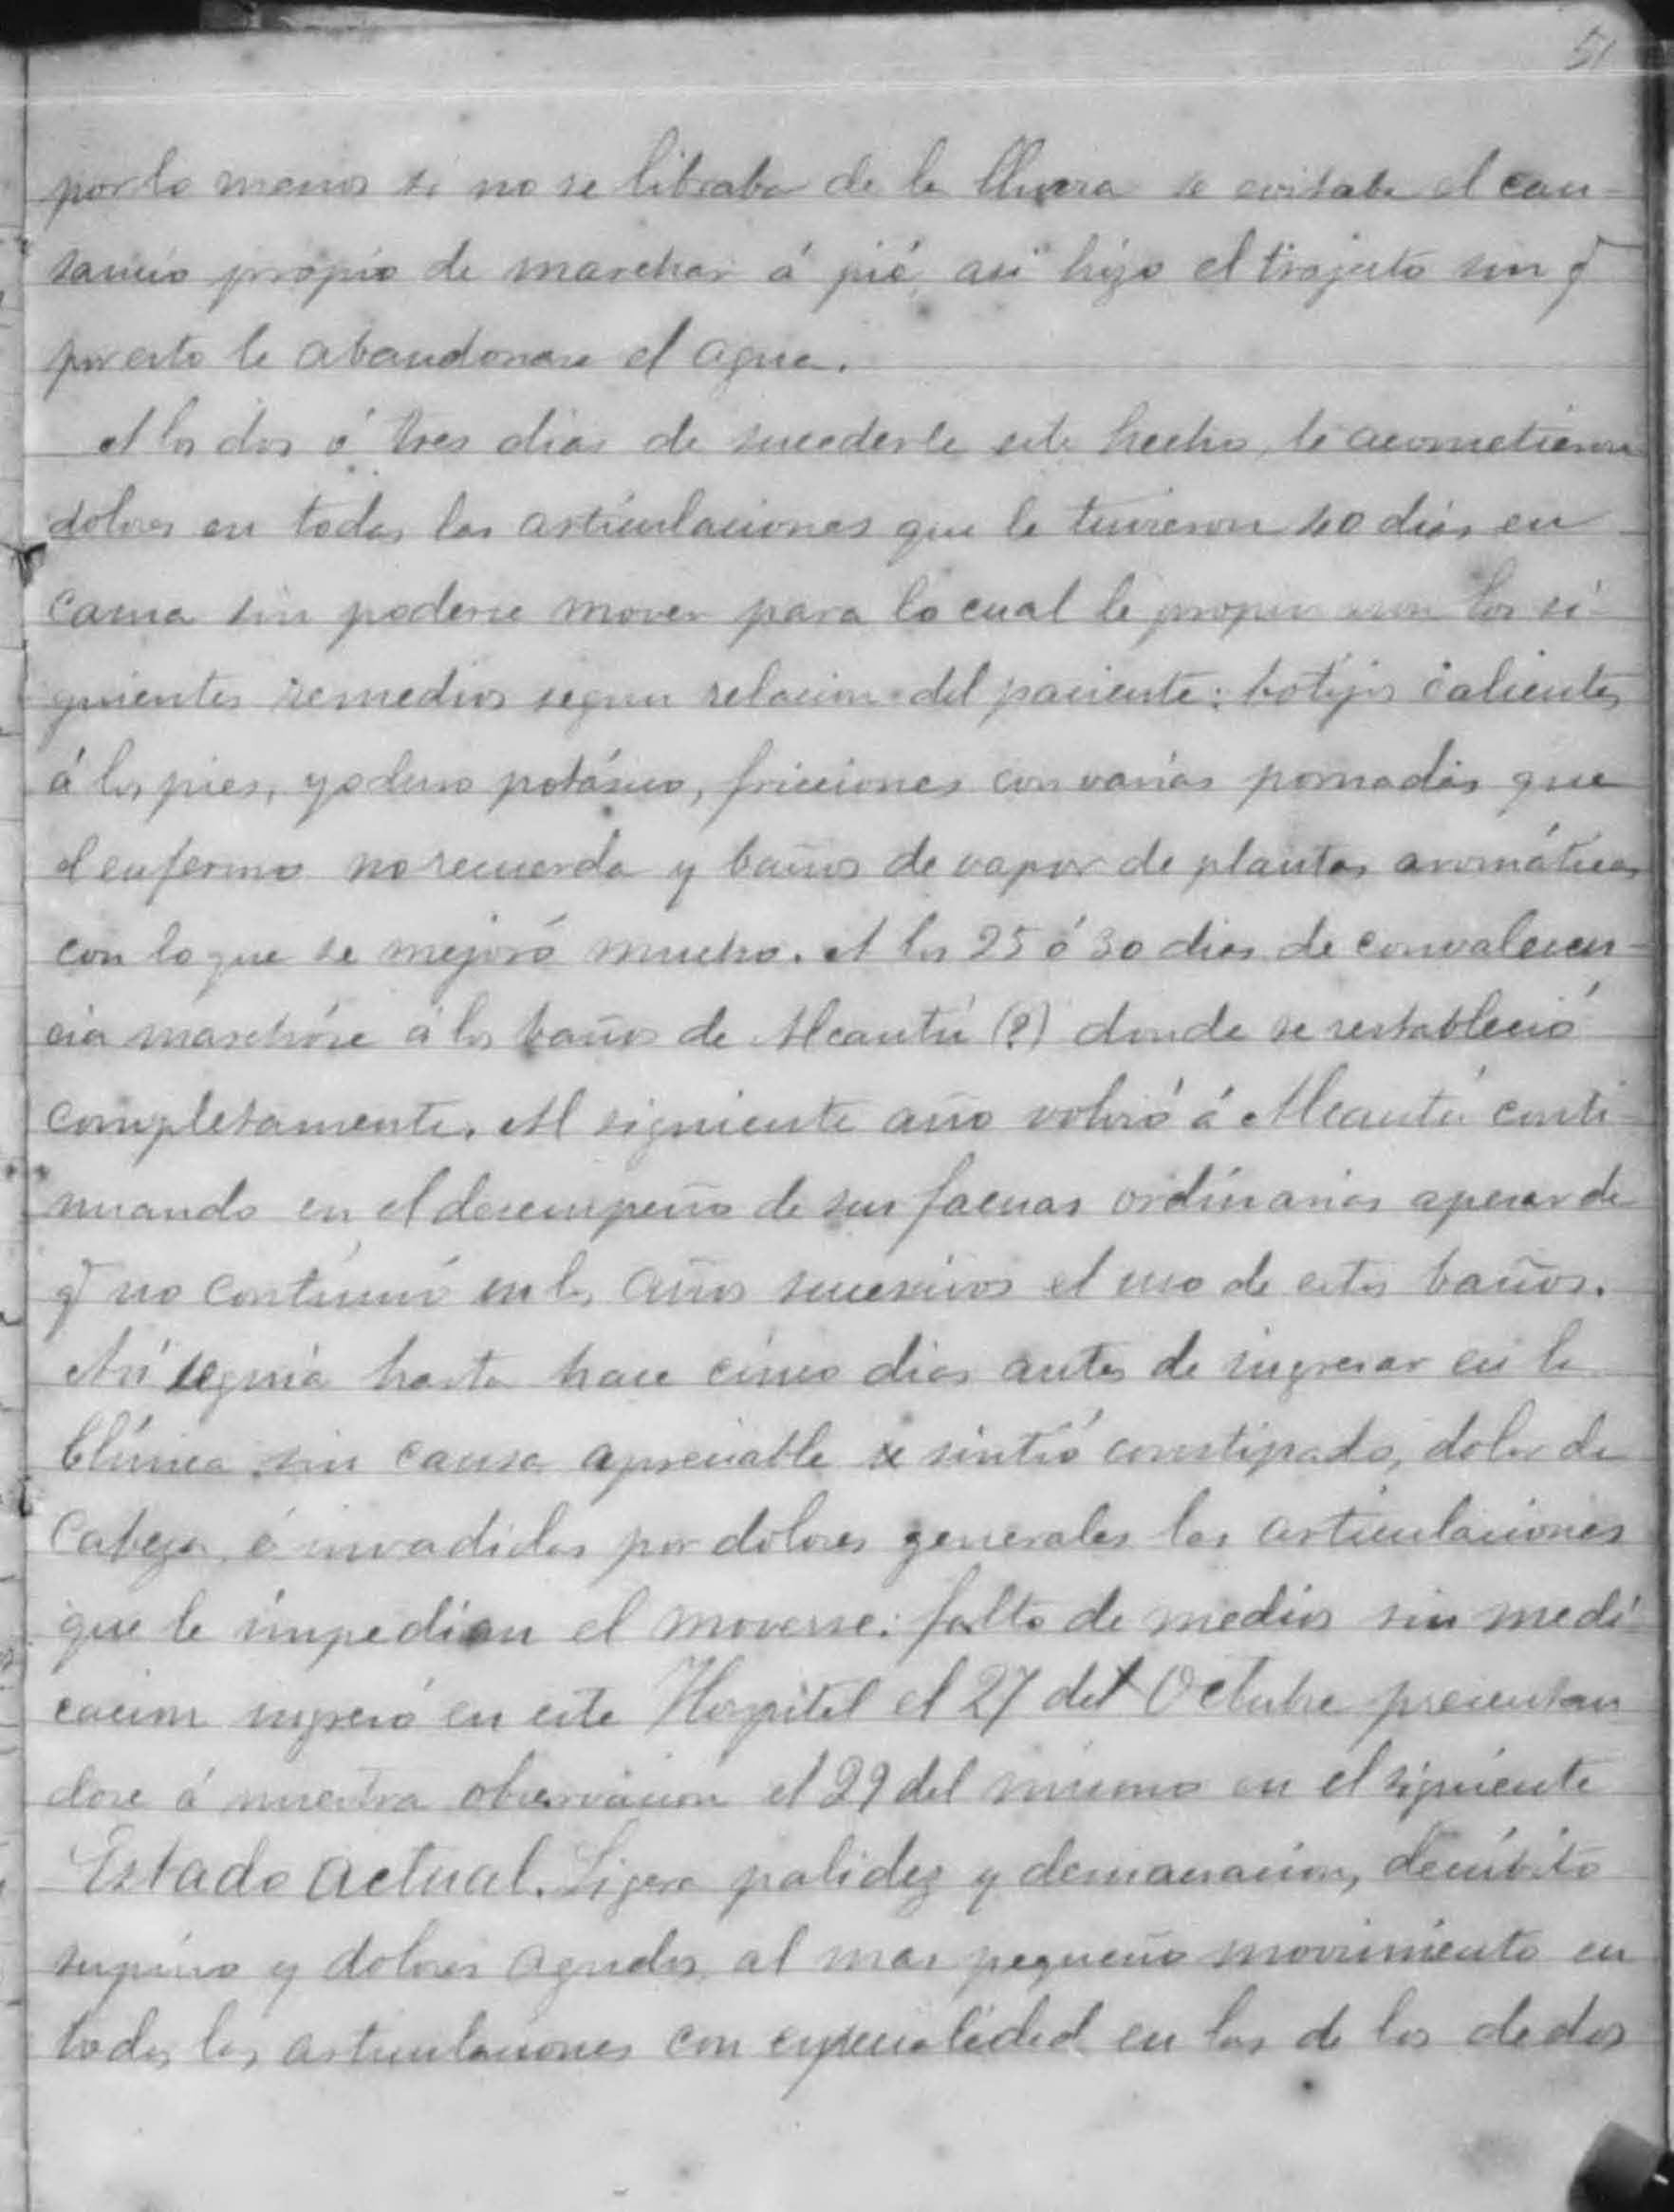 51
por lo menos si no se libraba de la lluvia se evitaba el can-
sancio propio de marchar á pié, asi hizo el trayecto sin q̃
por esto le abandonase el agua.
A los dos ó tres dias de sucederle este hecho, le acometieron
dolores en todas las articulaciones que le tuvieron 40 dias en
cama sin poderse mover para lo cual le propinaron los si-
guientes remedios segun relacion del paciente: botijos calientes
á los pies, yoduro potásico, fricciones con varias pomadas que
el enfermo no recuerda y baños de vapor de plantas aromáticas
con lo que se mejoró mucho. A los 25 ó 30 dias de convalecen-
cia marchóse á los baños de Alcantú (?) donde se restableció
completamente. Al siguiente año volvió á Alcantú conti-
nuando en el desempeño de sus faenas ordinarias apesar de
q̃ no continuó en los años sucesivos el uso de estos baños.
Así seguia hasta hace cinco dias antes de ingresar en la
Clínica sin causa apreciable se sintió constipado, dolor de
Cabeza, é invadidas por dolores generales las articulaciones
que le impedian el moverse: falto de medios sin medi-
cacion ingresó en este Hospital el 27 de Octubre presentan
dose á nuestra observacion el 29 del mismo en el siguiente
Estado actual. Ligera palidez y demacracion, decúbito
supino y dolores agudos al mas pequeño movimiento en
todas las articulaciones con especialidad en las de los dedos